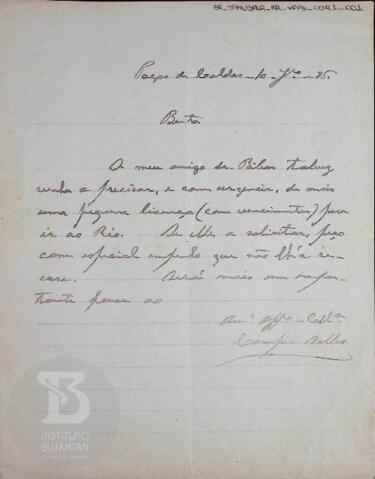 Poços de Caldas - 10 -
Bento.
O meu amigo dr. Bilac talvez
venha a precisar, e com urgencia, de mais
uma pequena licença (com vencimentos) para
ir ao Rio. Se elle a solicitar, peço
com especial empenho que não lh'a re-
cuse. Será mais um impor-
tante favor ao
Am.º Aff.º
INSTITUTO
BUTANTAN